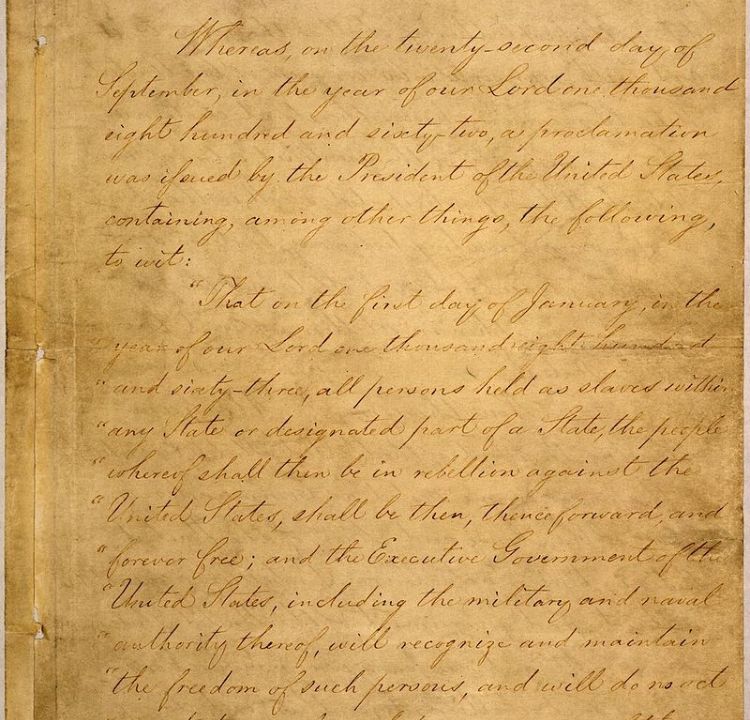 Whereas, on the twenty-second day of
September, in the year of our Lord one thousand
eight hundred and sixty-two, a proclamation
was issued by the President of the United States,
containing, among other things, the following,
to wit:
"That on the first day of January, in the
"year of our Lord one thousand eight hundred
"and sixty-three, all persons held as slaves within
"any State or designated part of a State, the people
"whereof shall then be in rebellion against the
"United States, shall be then, thenceforward, and
"forever free; and the Executive Government of the
"United States, including the military and naval
"authority thereof, will recognize and maintain
"the freedom of such persons, and will do no act